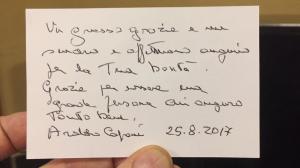 Un grosso grazie e un
sincero e affettuoso augurio
per la Tua bontà.
Grazie per essere una
grande persona cui auguro
tanto bene,
25.8.2017